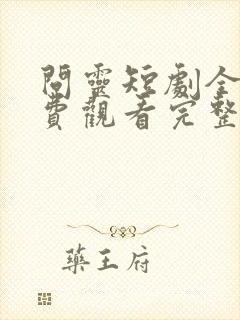 問靈短劇全
費觀看完整
藥王府